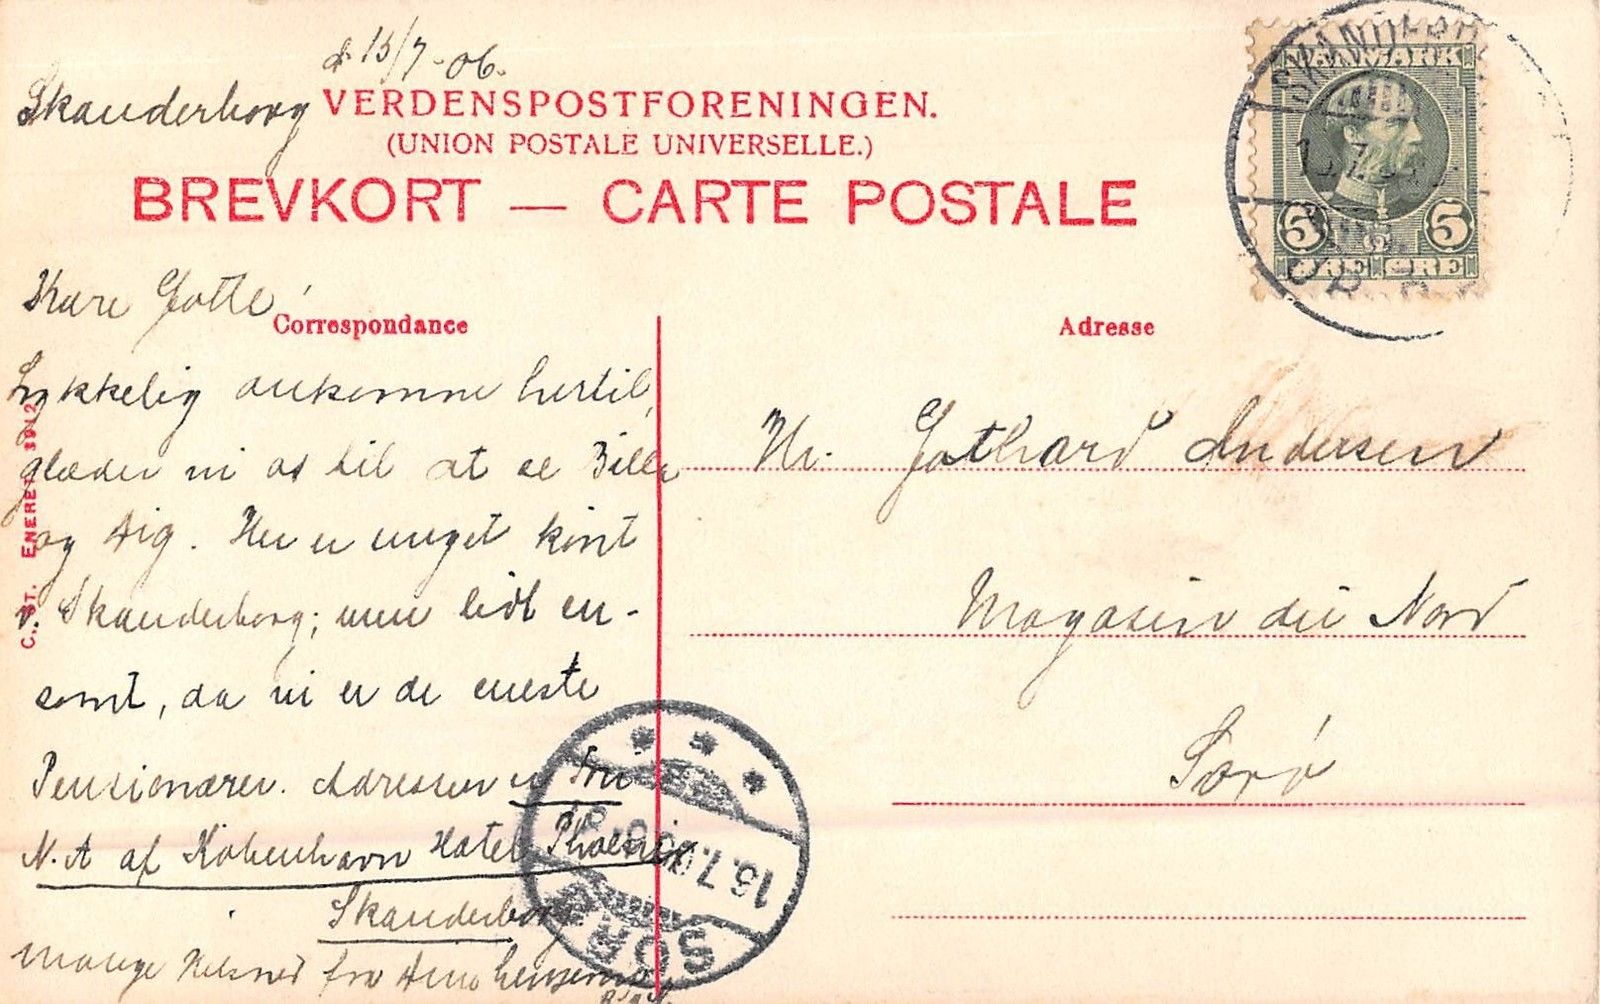 d 15/7-06.
Skanderborg
VERDENSPOSTFORENINGEN.
(UNION POSTALE UNIVERSELLE.)
BREVKORT — CARTE POSTALE
SKANDERBORG
DANMARK
5 5
ØRE ØRE
Kære Gotte!
Correspondance
Lykkelig ankomne hertil,
glæder vi os til at se Bille
og Dig. Her er meget kønt
v. Skanderborg; men lidt en-
somt, da vi er de eneste
Pensionærer. Adressen er Fru
N. A af København Hotel Phoenix
Skanderborg
mange Hilsner fra
C. ST. ENERET 3912
Adresse
Hr. Gothard Andersen
Magasin du Nord
Sorø
16.7.06
SORØ